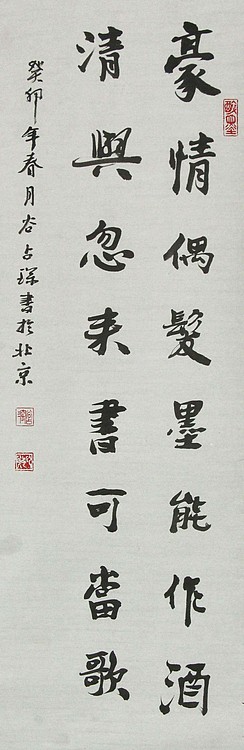 豪情偶髮墨能作酒
清興忽来書可當歌
癸卯年春月谷占琛書於北京